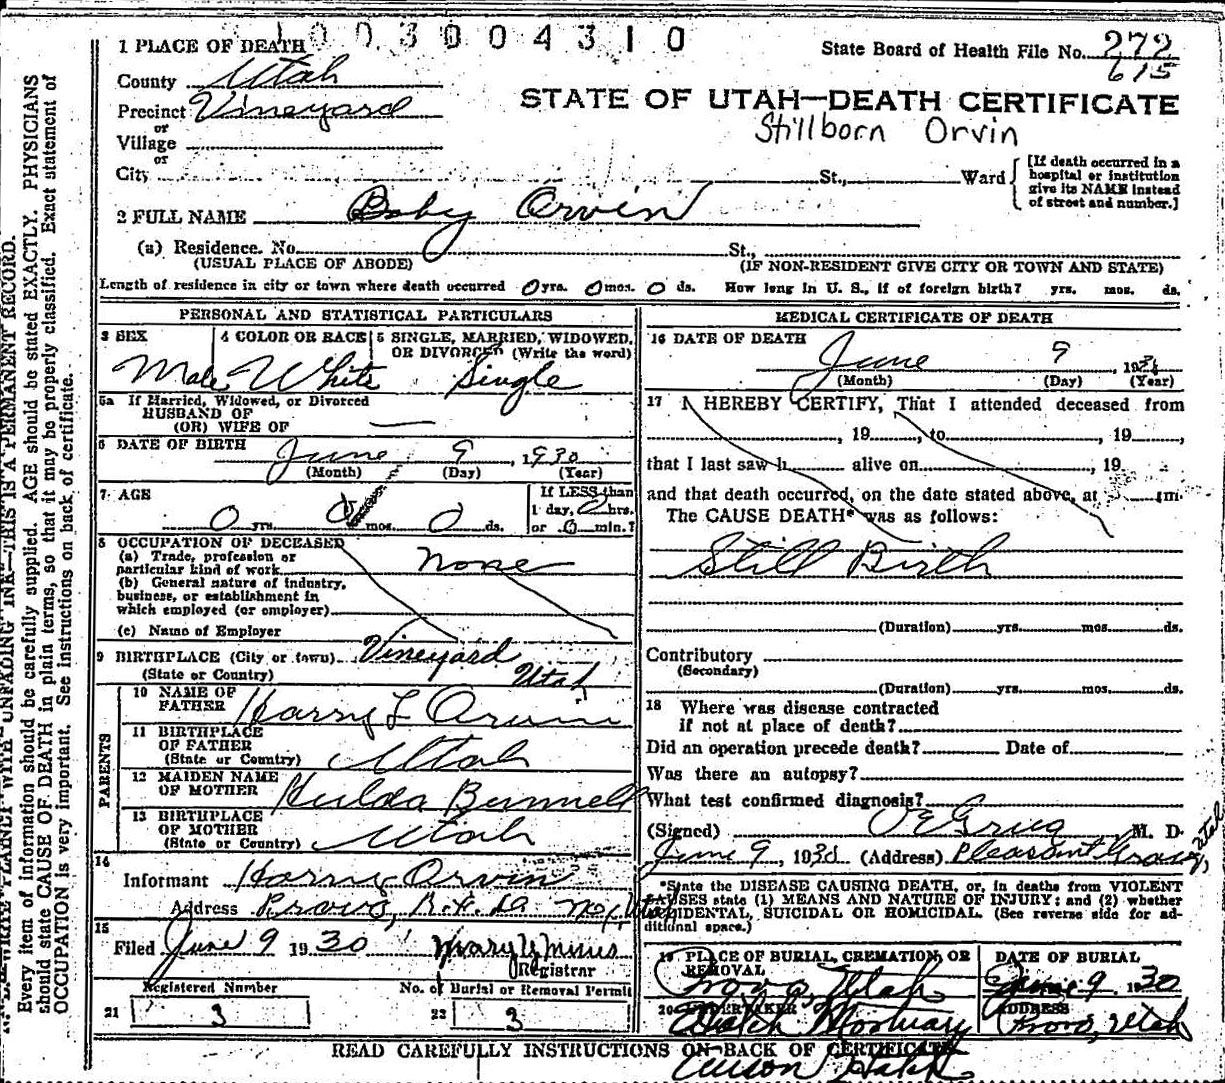 1003004310
1 PLACE OF DEATH
State Board of Health File No. 272
615
County Utah
STATE OF UTAH—DEATH CERTIFICATE
Precinct Vineyard
Stillborn Orvin
or
Village
or
City St., Ward
[If death occurred in a
hospital or institution
give its NAME instead
of street and number.]
2 FULL NAME Baby Orvin
(a) Residence. No. St.,
(USUAL PLACE OF ABODE) (IF NON-RESIDENT GIVE CITY OR TOWN AND STATE)
Length of residence in city or town where death occurred 0 yrs. 0 mos. 0 ds. How long in U. S., if of foreign birth? yrs. mos. ds.
PERSONAL AND STATISTICAL PARTICULARS
3 SEX 4 COLOR OR RACE 5 SINGLE, MARRIED, WIDOWED,
OR DIVORCED (Write the word)
Male White Single
5a If Married, Widowed, or Divorced
HUSBAND OF
(OR) WIFE OF
6 DATE OF BIRTH June 9, 1930
(Month) (Day) (Year)
7 AGE If LESS than
1 day, 0 hrs.
0 yrs. 0 mos. 0 ds. or 0 min.?
8 OCCUPATION OF DECEASED
(a) Trade, profession or
particular kind of work None
(b) General nature of industry,
business, or establishment in
which employed (or employer)
(c) Name of Employer
9 BIRTHPLACE (City or town) Vineyard
(State or Country) Utah
PARENTS
10 NAME OF
FATHER Harry L Orvin
11 BIRTHPLACE
OF FATHER
(State or Country) Utah
12 MAIDEN NAME
OF MOTHER Hulda Bunnell
13 BIRTHPLACE
OF MOTHER
(State or Country) Utah
14
Informant Harry Orvin
Address Provo, R.F.D. No 1, Utah
15
Filed June 9 1930
Registrar
Registered Number No. of Burial or Removal Permit
21 3 22 3
MEDICAL CERTIFICATE OF DEATH
16 DATE OF DEATH
June 9, 1930
(Month) (Day) (Year)
17 I HEREBY CERTIFY, That I attended deceased from
, 19 , to , 19 ,
that I last saw h alive on , 19
and that death occurred, on the date stated above, at m.
The CAUSE DEATH* was as follows:
Still Birth
(Duration) yrs. mos. ds.
Contributory
(Secondary)
(Duration) yrs. mos. ds.
18 Where was disease contracted
if not at place of death?
Did an operation precede death? Date of
Was there an autopsy?
What test confirmed diagnosis?
(Signed) M. D.
June 9, 1930 (Address) Pleasant Grove, Utah
*State the DISEASE CAUSING DEATH, or, in deaths from VIOLENT
CAUSES state (1) MEANS AND NATURE OF INJURY; and (2) whether
ACCIDENTAL, SUICIDAL OR HOMICIDAL. (See reverse side for ad-
ditional space.)
19 PLACE OF BURIAL, CREMATION, OR
REMOVAL
Provo, Utah
DATE OF BURIAL
June 9 1930
20 UNDERTAKER
Hatch Mortuary
ADDRESS
Provo, Utah
READ CAREFULLY INSTRUCTIONS ON BACK OF CERTIFICATE
Hatch
WRITE PLAINLY WITH UNFADING INK—THIS IS A PERMANENT RECORD.
Every item of information should be carefully supplied. AGE should be stated EXACTLY. PHYSICIANS
should state CAUSE OF DEATH in plain terms, so that it may be properly classified. Exact statement of
OCCUPATION is very important. See instructions on back of certificate.